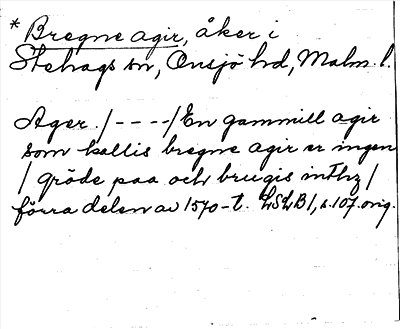 * Bregne agir, åker i
Stehags sn, Onsjö hd, Malm. l.
Ager. / - - - - / En gammill agir
som kallis bregne agir er ingen
/ gröde paa och brugis inthz /
förra delen av 1570-t. LSLB 1, s. 107. orig.